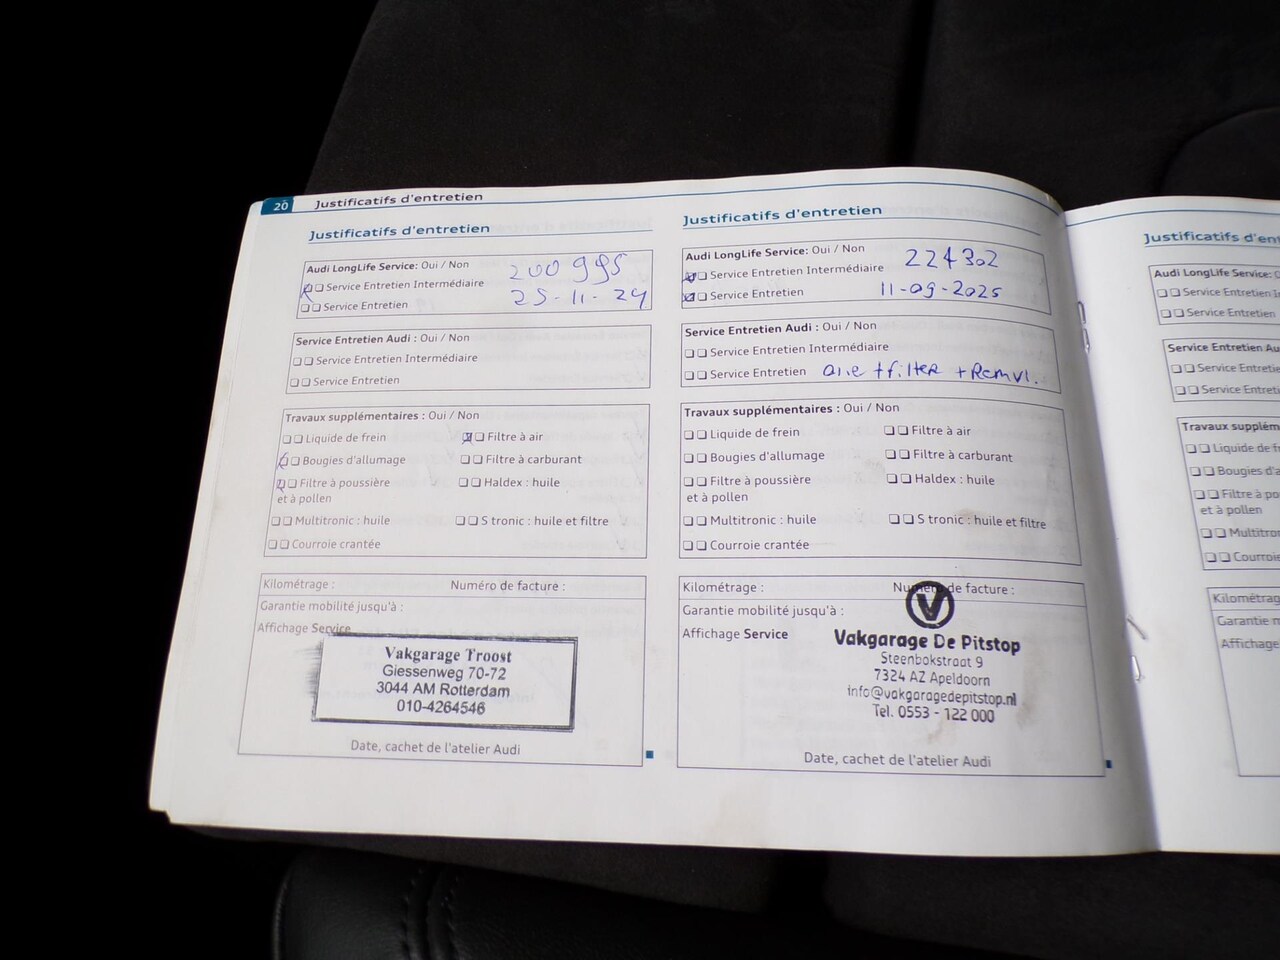 20 Justificatifs d'entretien
Justificatifs d'entretien
Audi LongLife Service: Oui / Non
200 995
Service Entretien Intermédiaire
25-11-24
Service Entretien
Service Entretien Audi : Oui / Non
Service Entretien Intermédiaire
Service Entretien
Travaux supplémentaires : Oui / Non
Liquide de frein
Filtre à air
Bougies d'allumage
Filtre à carburant
Filtre à poussière
et à pollen
Haldex : huile
Multitronic : huile
S tronic : huile et filtre
Courroie crantée
Kilométrage : Numéro de facture :
Garantie mobilité jusqu'à :
Affichage Service
Vakgarage Troost
Giessenweg 70-72
3044 AM Rotterdam
010-4264546
Date, cachet de l'atelier Audi
Justificatifs d'entretien
Audi LongLife Service: Oui / Non
224302
Service Entretien Intermédiaire
Service Entretien
11-09-2025
Service Entretien Audi : Oui / Non
Service Entretien Intermédiaire
Service Entretien
olie + filter + Remvl.
Travaux supplémentaires : Oui / Non
Liquide de frein
Filtre à air
Bougies d'allumage
Filtre à carburant
Filtre à poussière
et à pollen
Haldex : huile
Multitronic : huile
S tronic : huile et filtre
Courroie crantée
Kilométrage : Numéro de facture :
Garantie mobilité jusqu'à :
Affichage Service
V
Vakgarage De Pitstop
Steenbokstraat 9
7324 AZ Apeldoorn
info@vakgaragedepitstop.nl
Tel. 0553 - 122 000
Date, cachet de l'atelier Audi
Justificatifs d'en
Audi LongLife Service:
Service Entretien
Service Entretien
Service Entretien Au
Service
Service
Travaux supplém
Liquide de
Bougies
Filtre à
et à pollen
Multitro
Courroie
Kilométrag
Garantie
Affichage